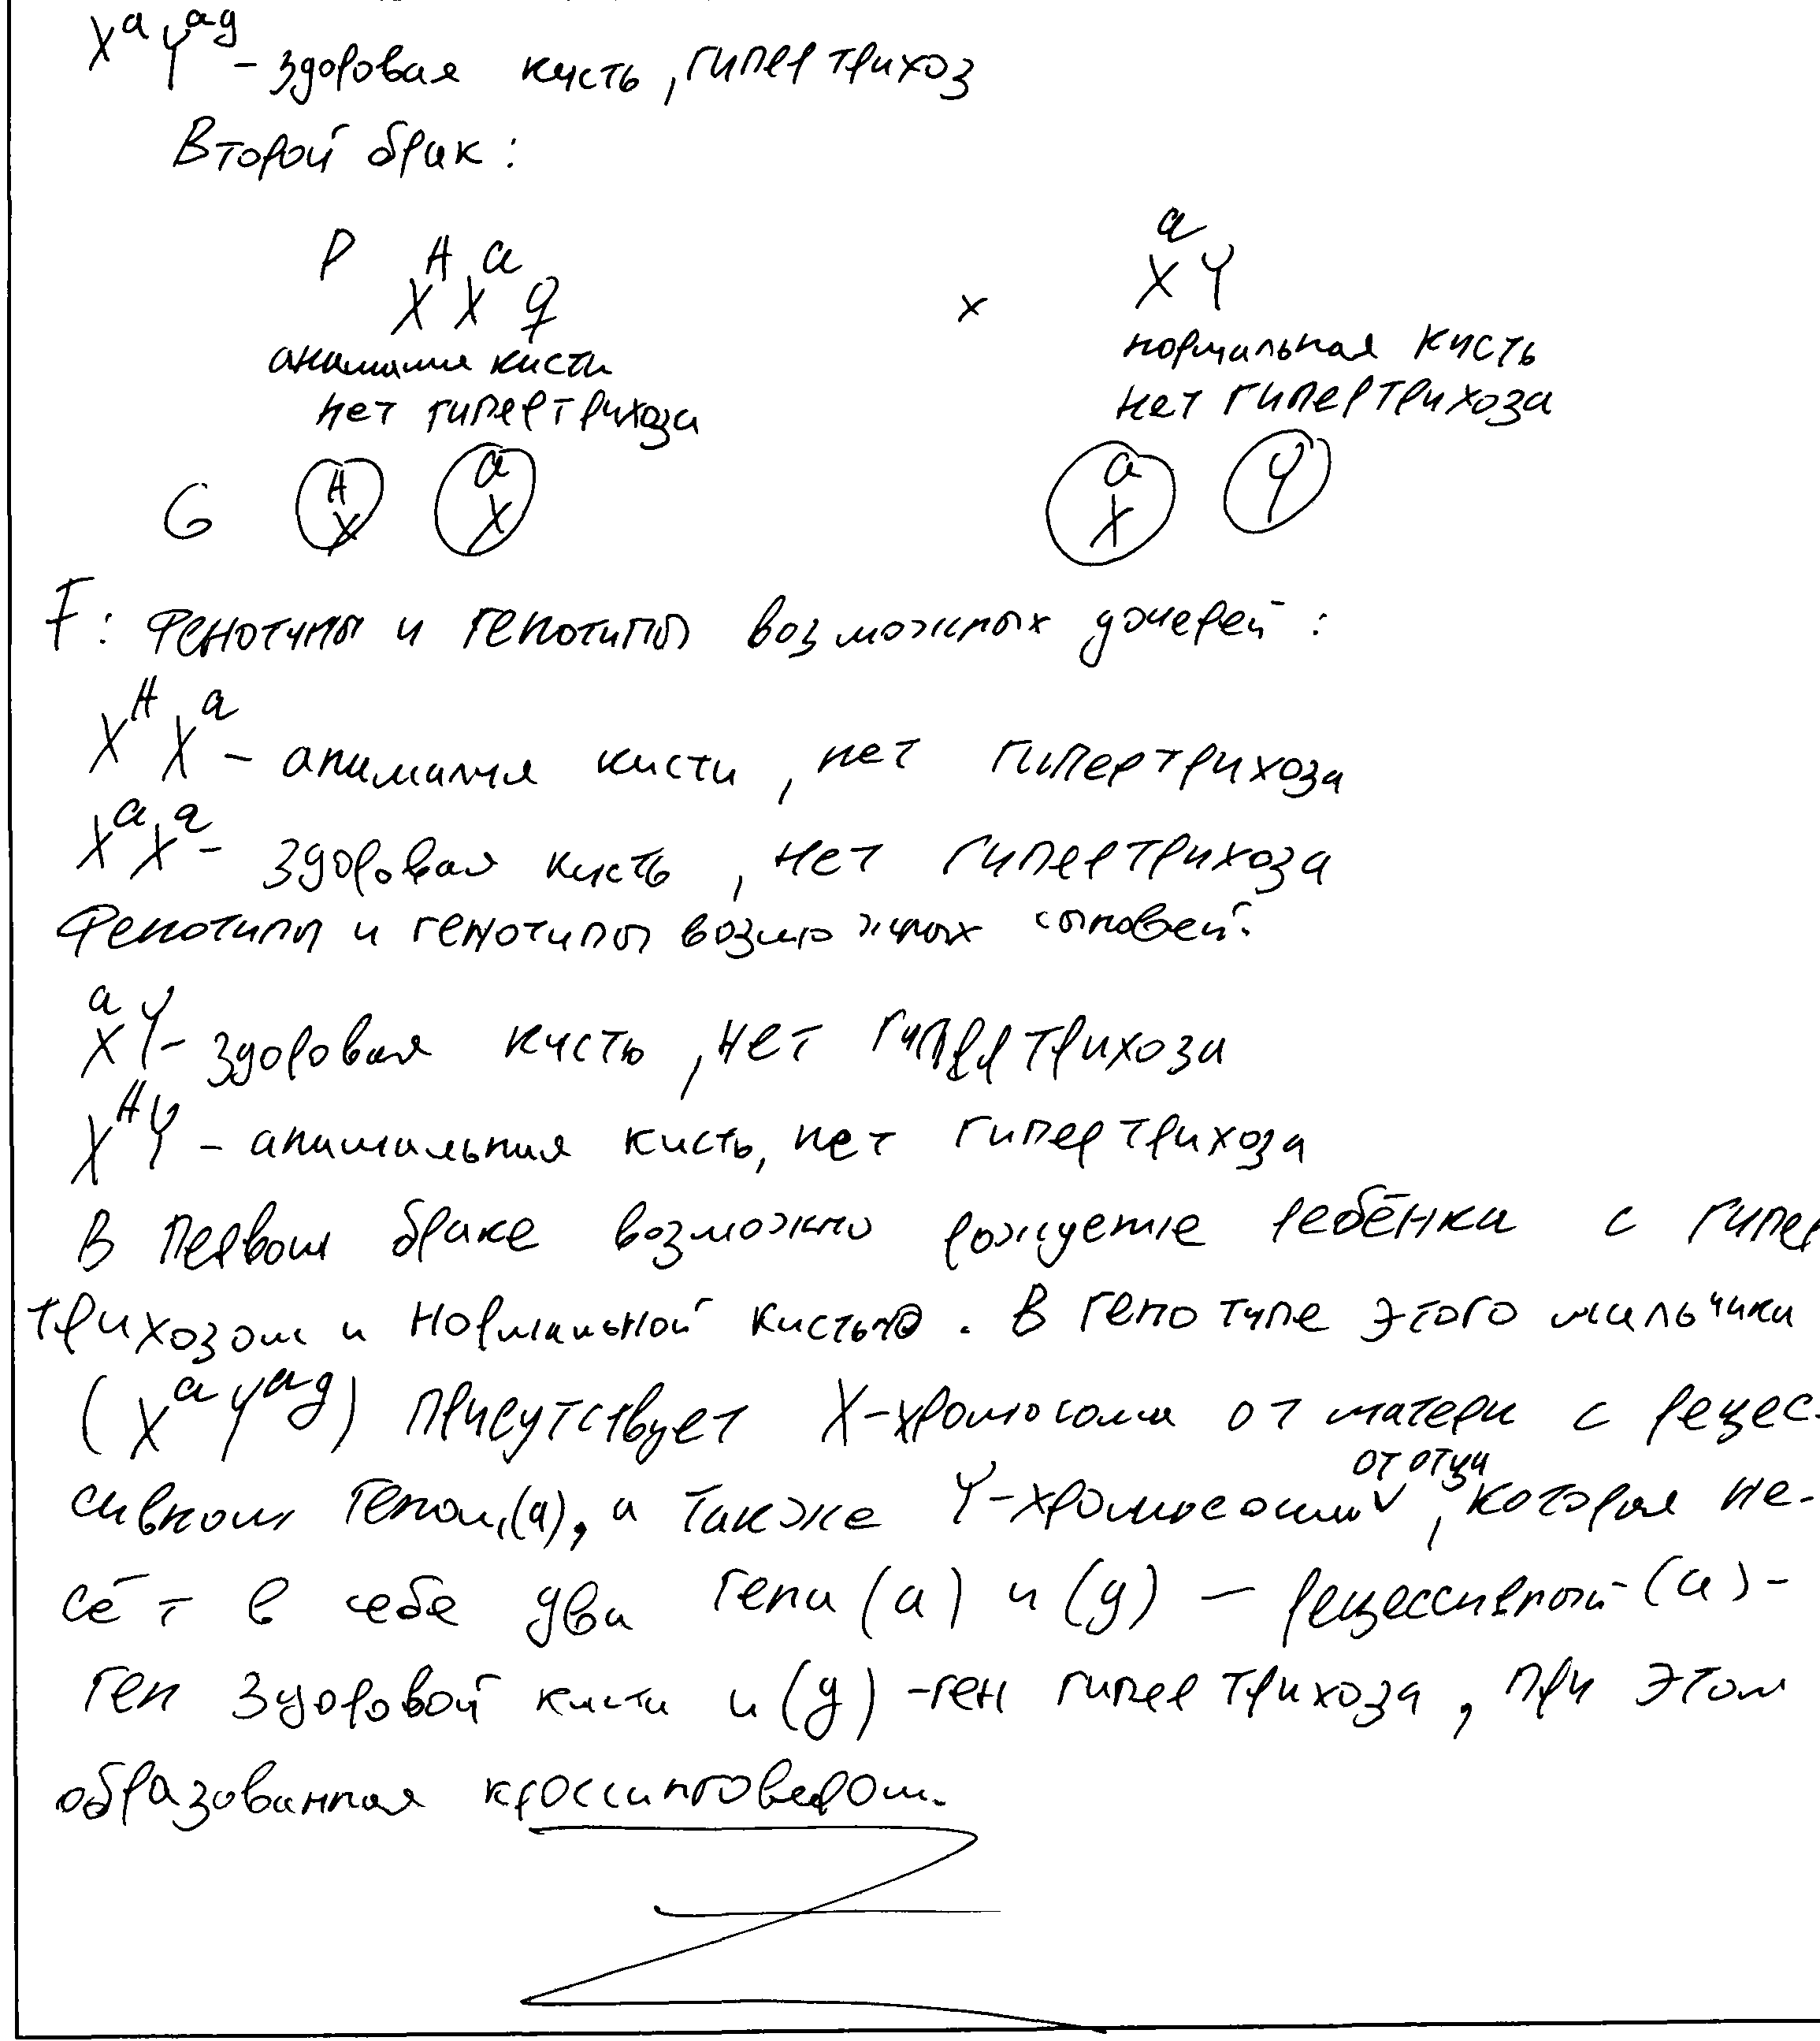 XᵃYᵃᵍ – здоровая кисть, гипертрихоз
Второй брак:
P Xᴬ Xᵃ ♀ × Xᵃ Y
анималия кисти нормальная кисть
нет гипертрихоза нет гипертрихоза
G Xᴬ Xᵃ Xᵃ Y
F: Фенотипы и генотипы возможных дочерей:
XᴬXᵃ – анималия кисти, нет гипертрихоза
XᵃXᵃ – здоровая кисть, нет гипертрихоза
Фенотипы и генотипы возможных сыновей:
XᵃY – здоровая кисть, нет гипертрихоза
XᴬY – анимальная кисть, нет гипертрихоза
В первом браке возможно рождение ребёнка с гипер
трихозом и нормальной кистью. В генотипе этого мальчика
(XᵃYᵃᵍ) присутствует X-хромосома от матери с рецес-
сивном геном,(а), а также Y-хромосома от отца, которая не-
сёт в себе два гена (а) и (g) – рецессивный (а)-
ген здоровой кисти и (g) -ген гипертрихоза, при этом
образованная кроссинговером.